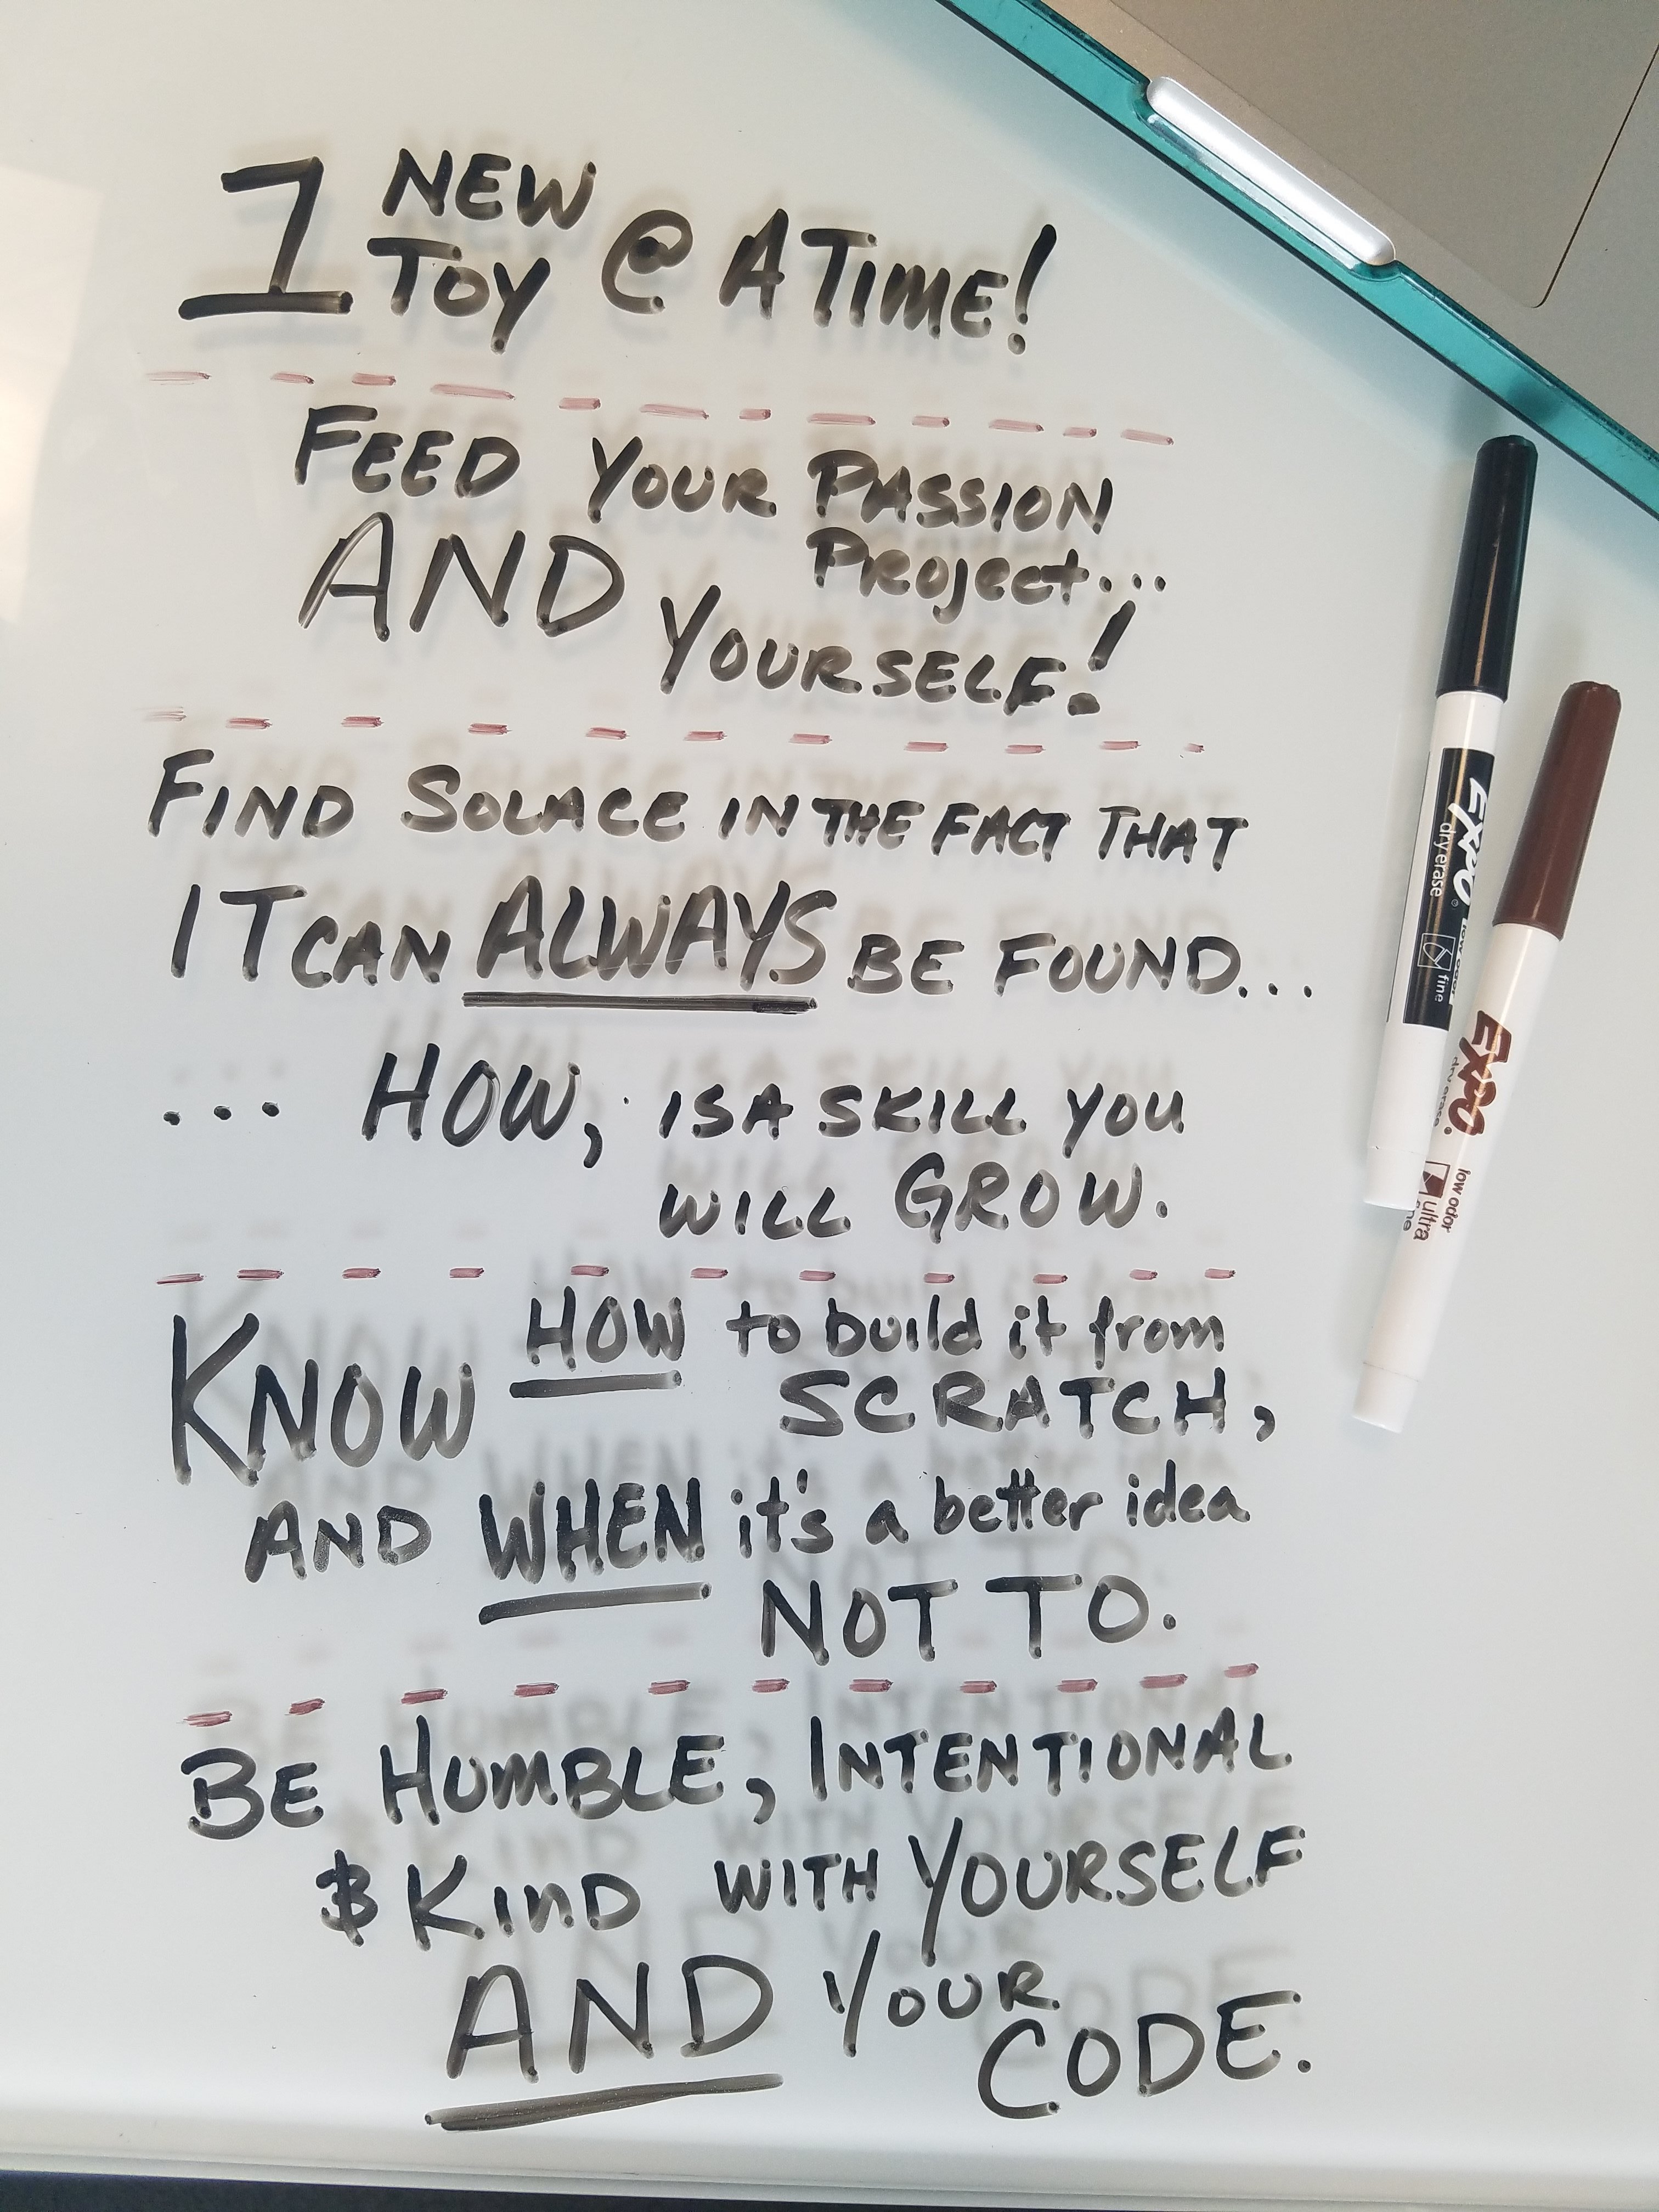 1 NEW TOY @ A TIME!
FEED YOUR PASSION
PROJECT...
AND YOURSELF!
FIND SOLACE IN THE FACT THAT
IT CAN ALWAYS BE FOUND...
... HOW, IS A SKILL YOU
WILL GROW.
KNOW HOW to build it from
SCRATCH,
AND WHEN it's a better idea
NOT TO.
BE HUMBLE, INTENTIONAL
& KIND WITH YOURSELF
AND YOUR
CODE.
EXPO
dry erase
fine
EXPO
dry erase
low odor
ultra